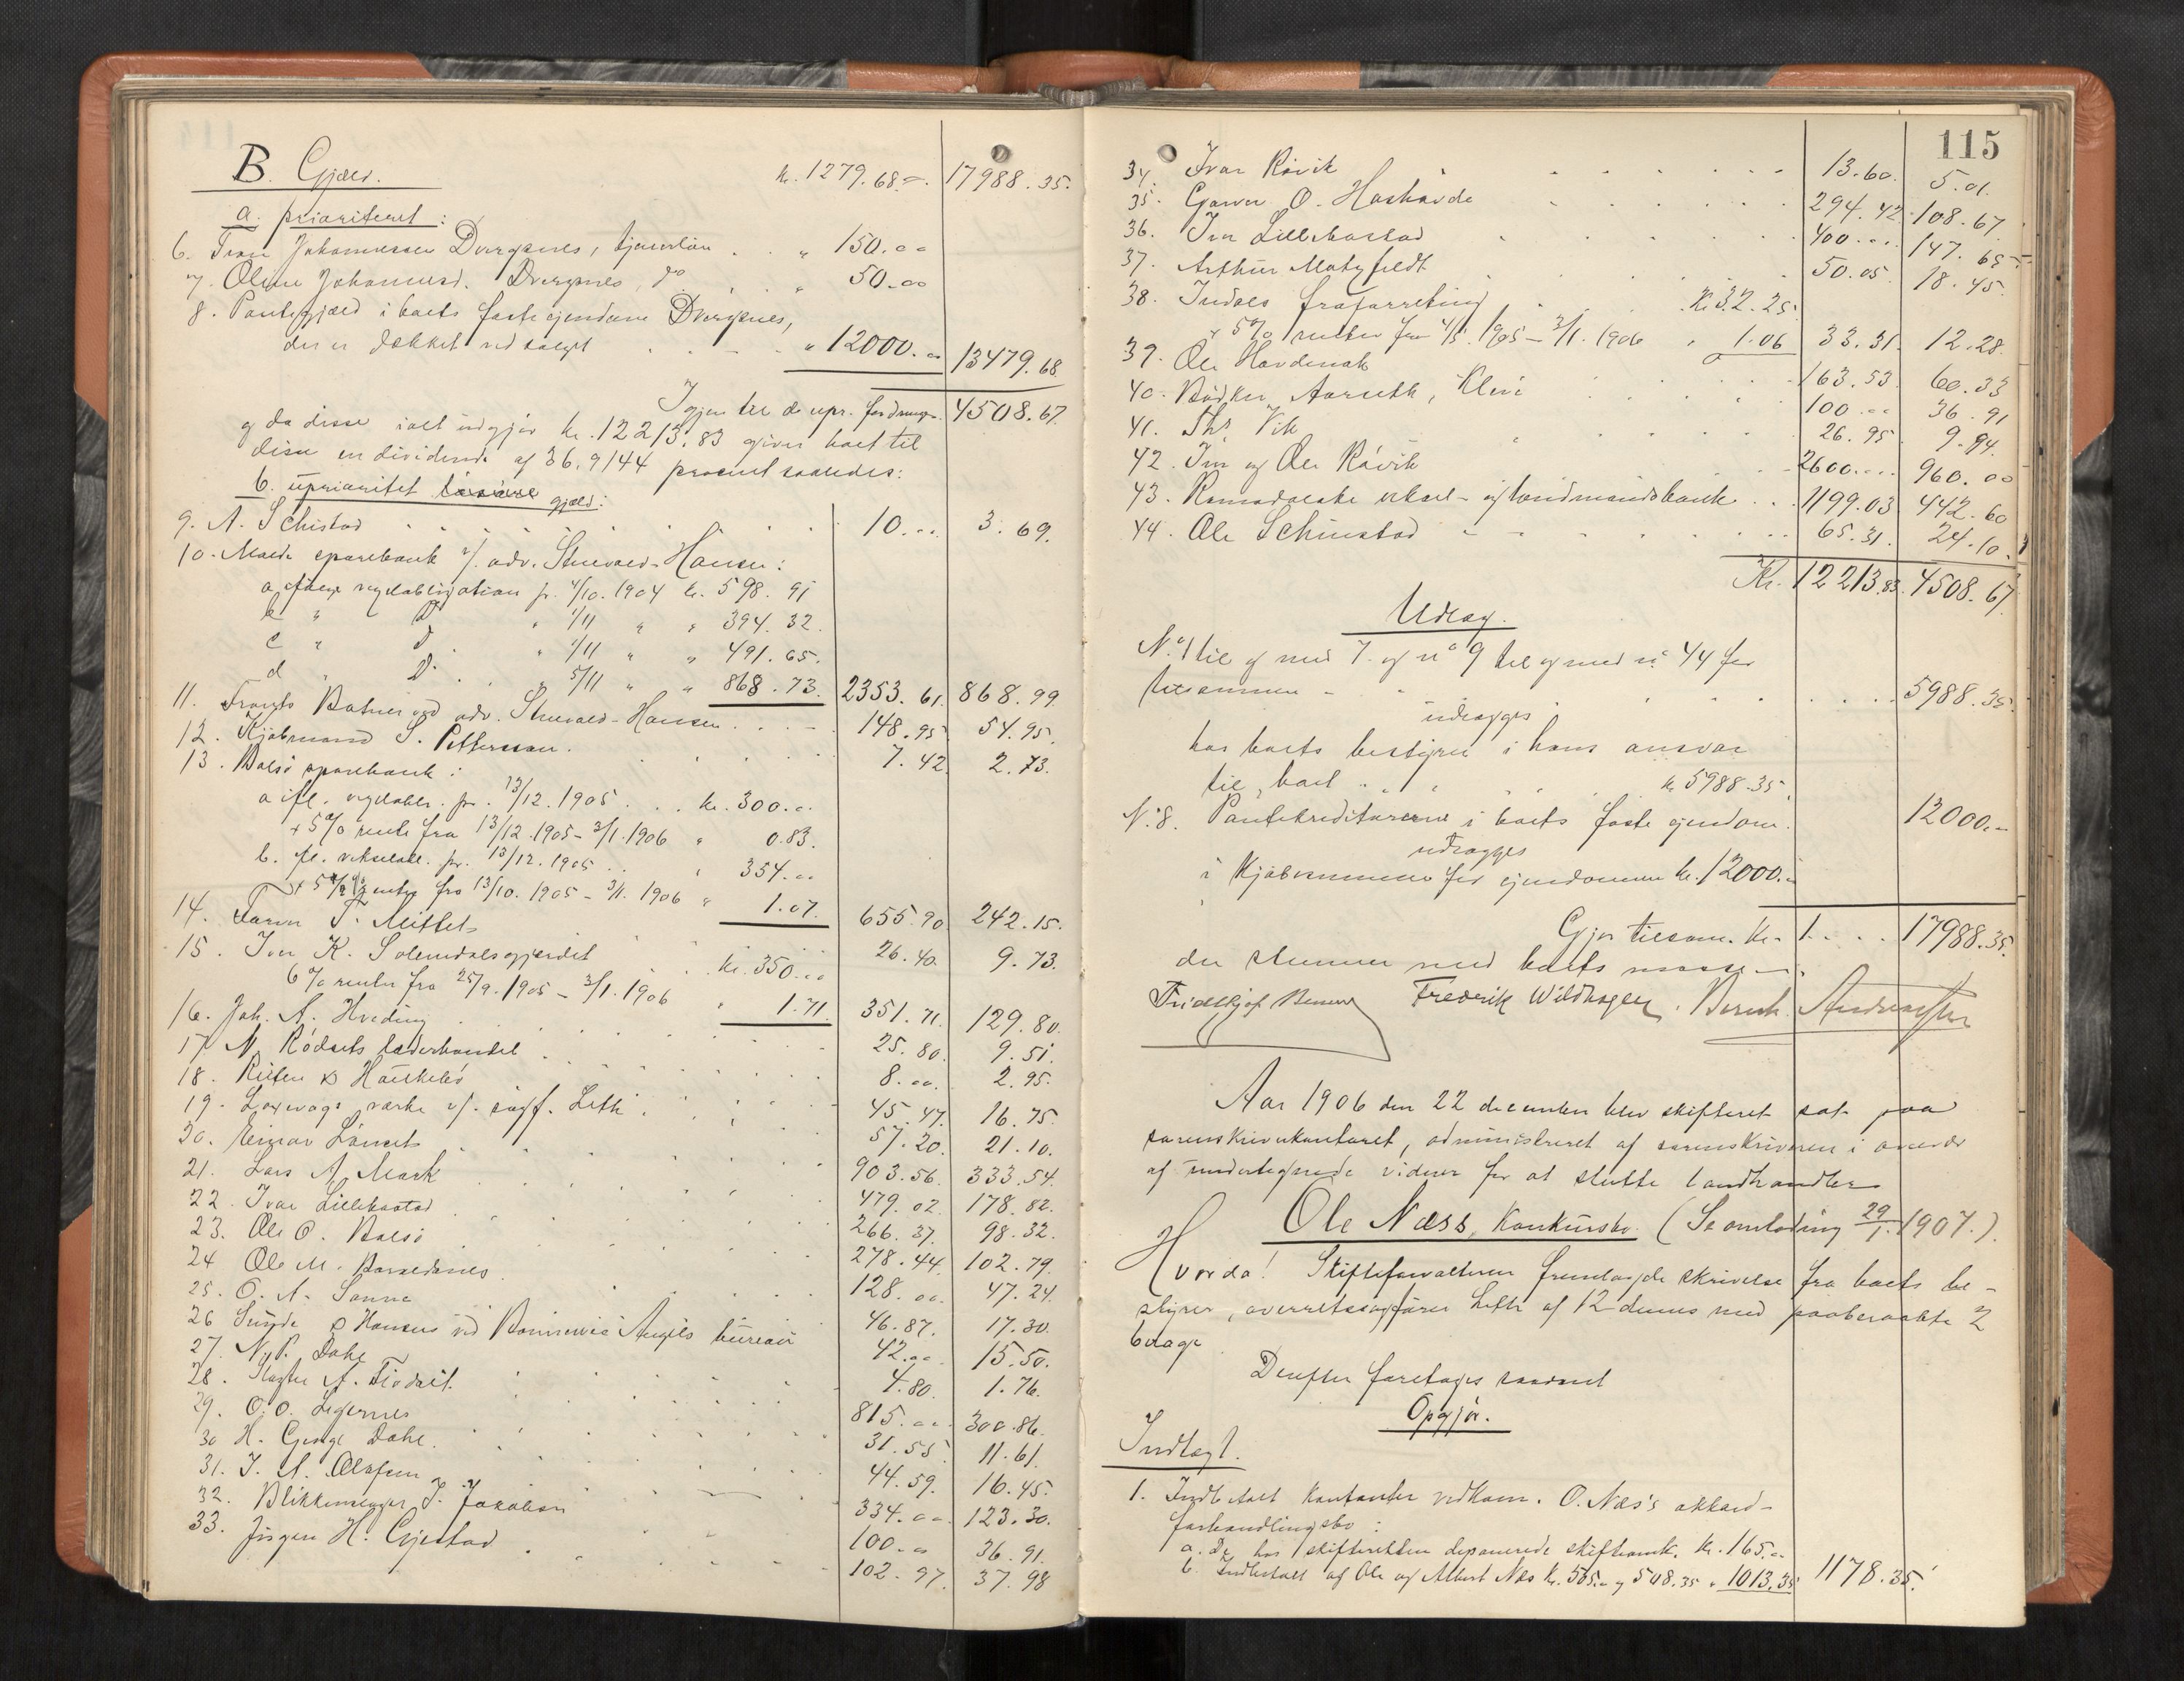 B. Gjæld. kr. 1279.68. 17988.35.
a. prioriteret:
6. Johannessen Dvergsnes, tjenerløn " 150.00
7. Oline Johannesd. Dvergsnes, do " 50.00
8. Pantegjæld i boets faste eiendom Dvergsnes,
der er dækket ved salget " 12000.00 13479.68
Igjen til de upr. fordringer 4508.67
og da disse ialt udgjør kr. 12213.83 giver boet til
disse en dividende af 36,9144 procent saaledes:
b. uprioritet gjæld:
9. A. Schistad 10.00 3.69.
10. Molde sparebank v/. adv. Struvald-Hansen:
a. ifølge vexelobligation pr. 4/10. 1904 kr. 598.91
b " D " 1/11 " " 394.32.
c " D " 1/11 " " 491.65.
d " D. " 5/11 " " 868.73. 2353.61. 868.99
11. ved adv. Struvald-Hansen 148.95 54.95.
12. Kjøbmand S. Pettersson. 7.42 2.73.
13. Bolsø sparebank:
a ifl. vexelobl. pr. 13/12.1905. kr. 300.00
+ 5% rente fra 13/12.1905 - 3/1.1906 " 0.83.
b. ifl. vekselobl. pr. 13/12.1905 " 354.00
+ 5 % rente fra 13/10.1905 - 3/1.1906 " 1.07. 655.90 242.15.
14. T. Mittet 26.40. 9.73.
15. Iver K. Solemdalsgjerdet kr. 350.00
6% renter fra 25/9.1905 - 3/1.1906 " 1.71. 351.71. 129.80.
16. Joh. A. Hveding 25.80. 9.51.
17 N. Rødsets læderhandel 8.00. 2.95.
18. & Hauskebø 45.47 16.75.
19. værke v/. sagf. Leth 57.20. 21.10.
20. Einar 903.56. 333.54.
21. Lars A. Mork 479.02 178.82.
22. Ivar Lillebostad 266.37. 98.32.
23. Ole O. Bolsø 278.44. 102.79.
24 Ole M. 128.00. 47.24.
25. O. A. Sanne 46.87. 17.30.
26 Sunde & Hansen ved bureau 42.00 15.50.
27. N. P. Dahl 4.80. 1.76.
28. A. 815.00 300.86.
29. O. O. 31.55 11.61.
30 H. George Dahl. 44.59. 16.45.
31. I. A. Olafsen 334.00 123.30.
32. Blikkenslager J. Jakobsen 100.00 36.91.
33. Jørgen H. Gjestad 102.97. 37.98
115
34. Ivar Røvik 13.60. 5.01.
35. Garver O. Haskavde 294.42. 108.67
36. Iver Lillebostad 400.00. 147.65
37. Arthur Motzfeldt 50.05 18.45.
38. forretning Kr. 32.25.
+ 5% renter fra 4/5.1905 - 3/1.1906 " 1.06 33.31. 12.28.
39. Ole Havdenak 163.53 60.33
40. Bødker Aarseth, Kleive 100.00 36.91
41. Ths. Vik 26.95 9.94.
42. Iver og Ole Røvik 2600.00. 960.00
43. Romsdalske veksel- og landmandsbank 1199.03 442.60
44. Ole Schinstad 65.31. 24.10.
Kr. 12213.83. 4508.67.
Udlæg.
No. 1 til og med 7. og no 9 til og med no 44 før
tilsammen 5988.35.
udlægges
hos boets bestyrer i hans ansvar
til boet kr. 5988.35.
No. 8. Pantekreditorerne i boets faste eiendom. 12000.00
udlægges
i Kjøbesummen for eiendommen kr. 12000.00
Gjør tilsam. Kr. 17988.35.
der stemmer med boets masse.
Fridthjof Frederik Wildhagen. Bernh.
Aar 1906 den 22 december blev skifteret sat paa
sorenskriverkontoret, administreret af sorenskriveren i overvær
af undertegnede vidner for at slutte landhandler
Ole Næss, Konkursbo. (Se omlodning 29/1.1907.)
Hvorda! Skifteforvalteren fremlagde skrivelse fra boets be-
styrer, overretssagfører Leth af 12 dennes med paaberaabte 2
bilage
Derefter foretoges saadant
Opgjør.
Indtægt.
1. Indbetalt kontanter vedkom. O. Næs's akkord-
forhandlingsbo:
a. De hos skifteretten deponerede skifteomk. Kr. 165.00
b. Indbetalt af Ole og Albert Næs Kr. 505.00 og 508.35 " 1013.35 1178.35.